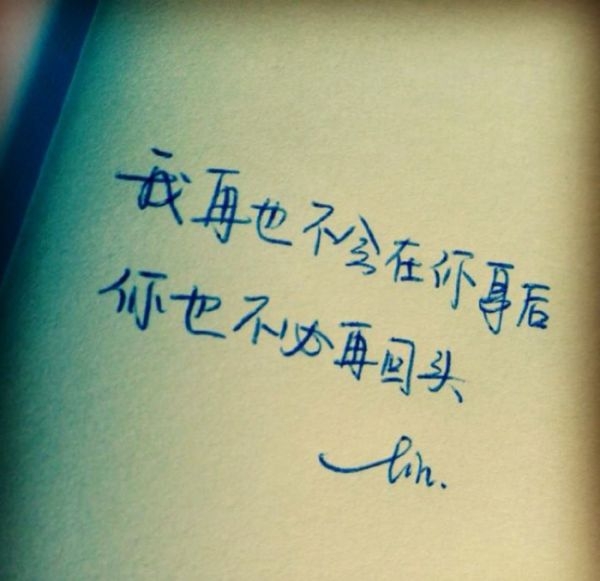 我再也不会在你身后
你也不必再回头
lin.